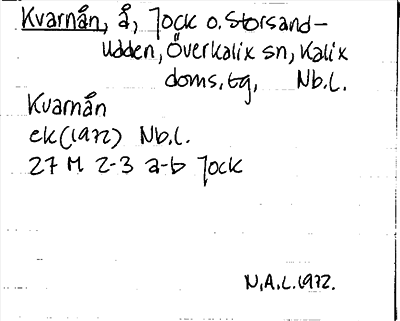 Kvarnån, å, Jock o. Storsand-
udden, Överkalix sn, Kalix
doms.tg, Nb.l.
Kvarnån
ek (1972) Nb.l.
27 M 2-3 a-b Jock
N.A.L. 1972.